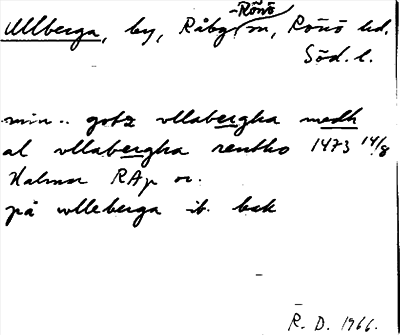 Ullberga, by, Råby-Rönö sn, Rönö hd.
Söd. l.
min .. gotz vllabergha medh
al vllabergha rentho 1473 14/8
Kalmar RAp or.
på vlleberga ib. bak
R. D. 1966.